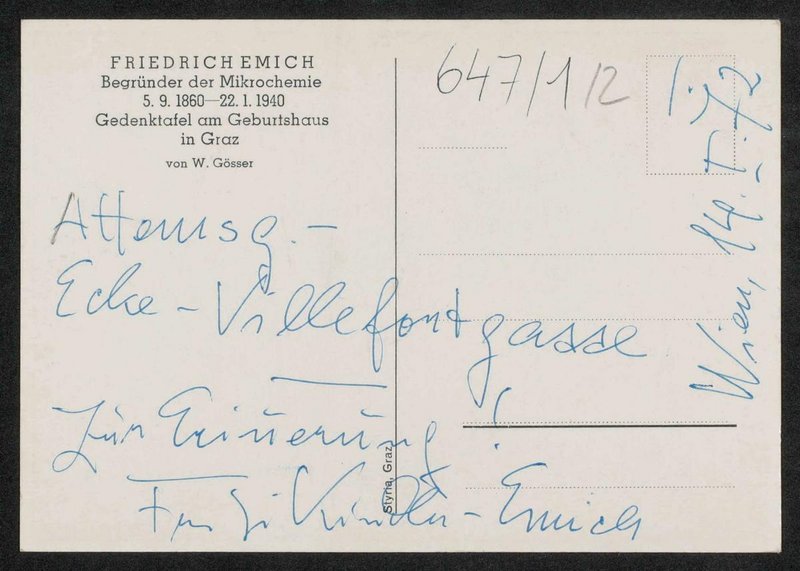 FRIEDRICH EMICH
Begründer der Mikrochemie
5. 9. 1860—22. 1. 1940
Gedenktafel am Geburtshaus
in Graz
von W. Gösser
647/1/2
Attemsg. –
Ecke – Villefortgasse
Zur Erinnerung!
– Emich
Styria, Graz
Wien, 14.